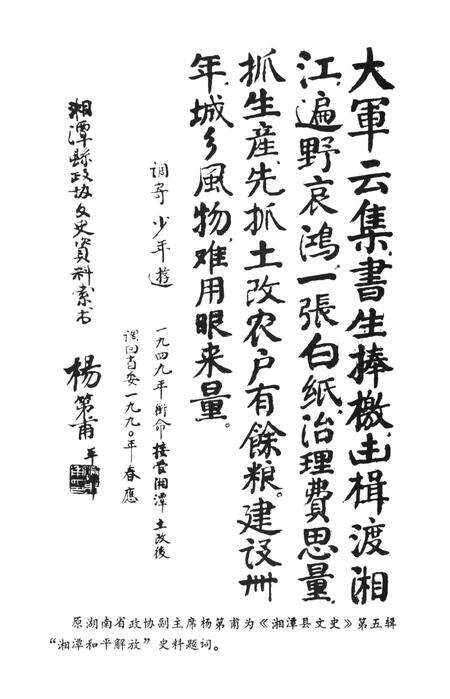 大軍云集,書生捧檄,击楫渡湘
江。遍野哀鴻,一張白纸,治理費思量。
抓生産,先抓土改,农户有餘粮。建设卌
年,城乡風物,难用眼来量。
调寄 少年遊
一九四九年衔命接管湘潭土改後
调回省委一九九〇年春應
湘潭縣政协文史資料索书
楊第甫
原湖南省政协副主席杨第甫为《湘潭县文史》第五辑
“湘潭和平解放”史料题词。